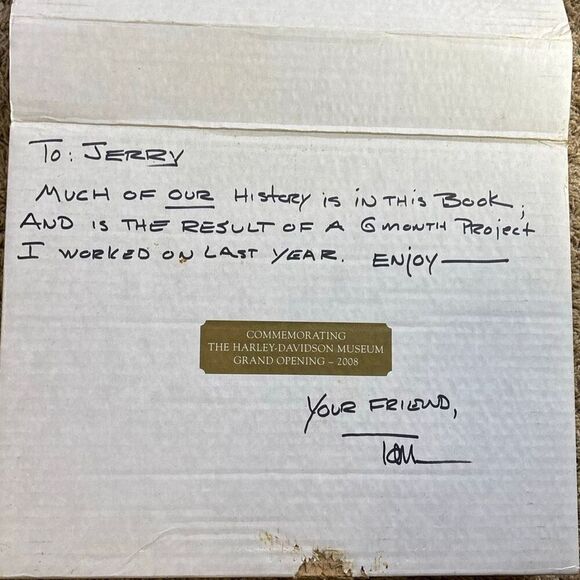 To: JERRY
MUCH OF OUR HISTORY IS IN THIS BOOK;
AND IS THE RESULT OF A 6 MONTH PROJECT
I WORKED ON LAST YEAR. ENJOY—
COMMEMORATING
THE HARLEY-DAVIDSON MUSEUM
GRAND OPENING – 2008
YOUR FRIEND,
TOM